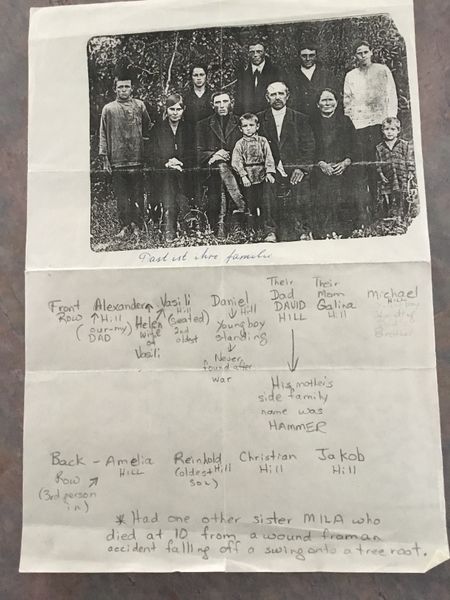 Dast ist ihre familie
Front
ROW
Alexander
Hill
(our-my)
DAD
Helen
wife
of
Vasili
Vasili
Hill
(seated)
2nd
oldest
Daniel
Hill
Young boy
standing
Never
found after
war
Their
Dad
DAVID
HILL
His mother's
side family
name was
HAMMER
Their
Mom
Galina
Hill
Michael
HILL
Brother
Back -
Row
(3rd person
in)
Amelia
HILL
Reinhold
(oldest Hill
son)
Christian
Hill
Jakob
Hill
* Had one other sister MILA who
died at 10 from a wound from an
accident falling off a swing onto a tree root.